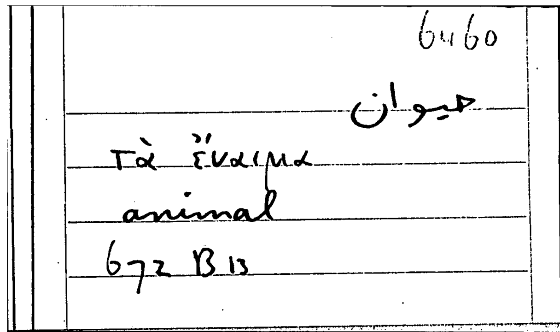 6460
حيوان
τὰ ἔναιμα
animal
672 B 13